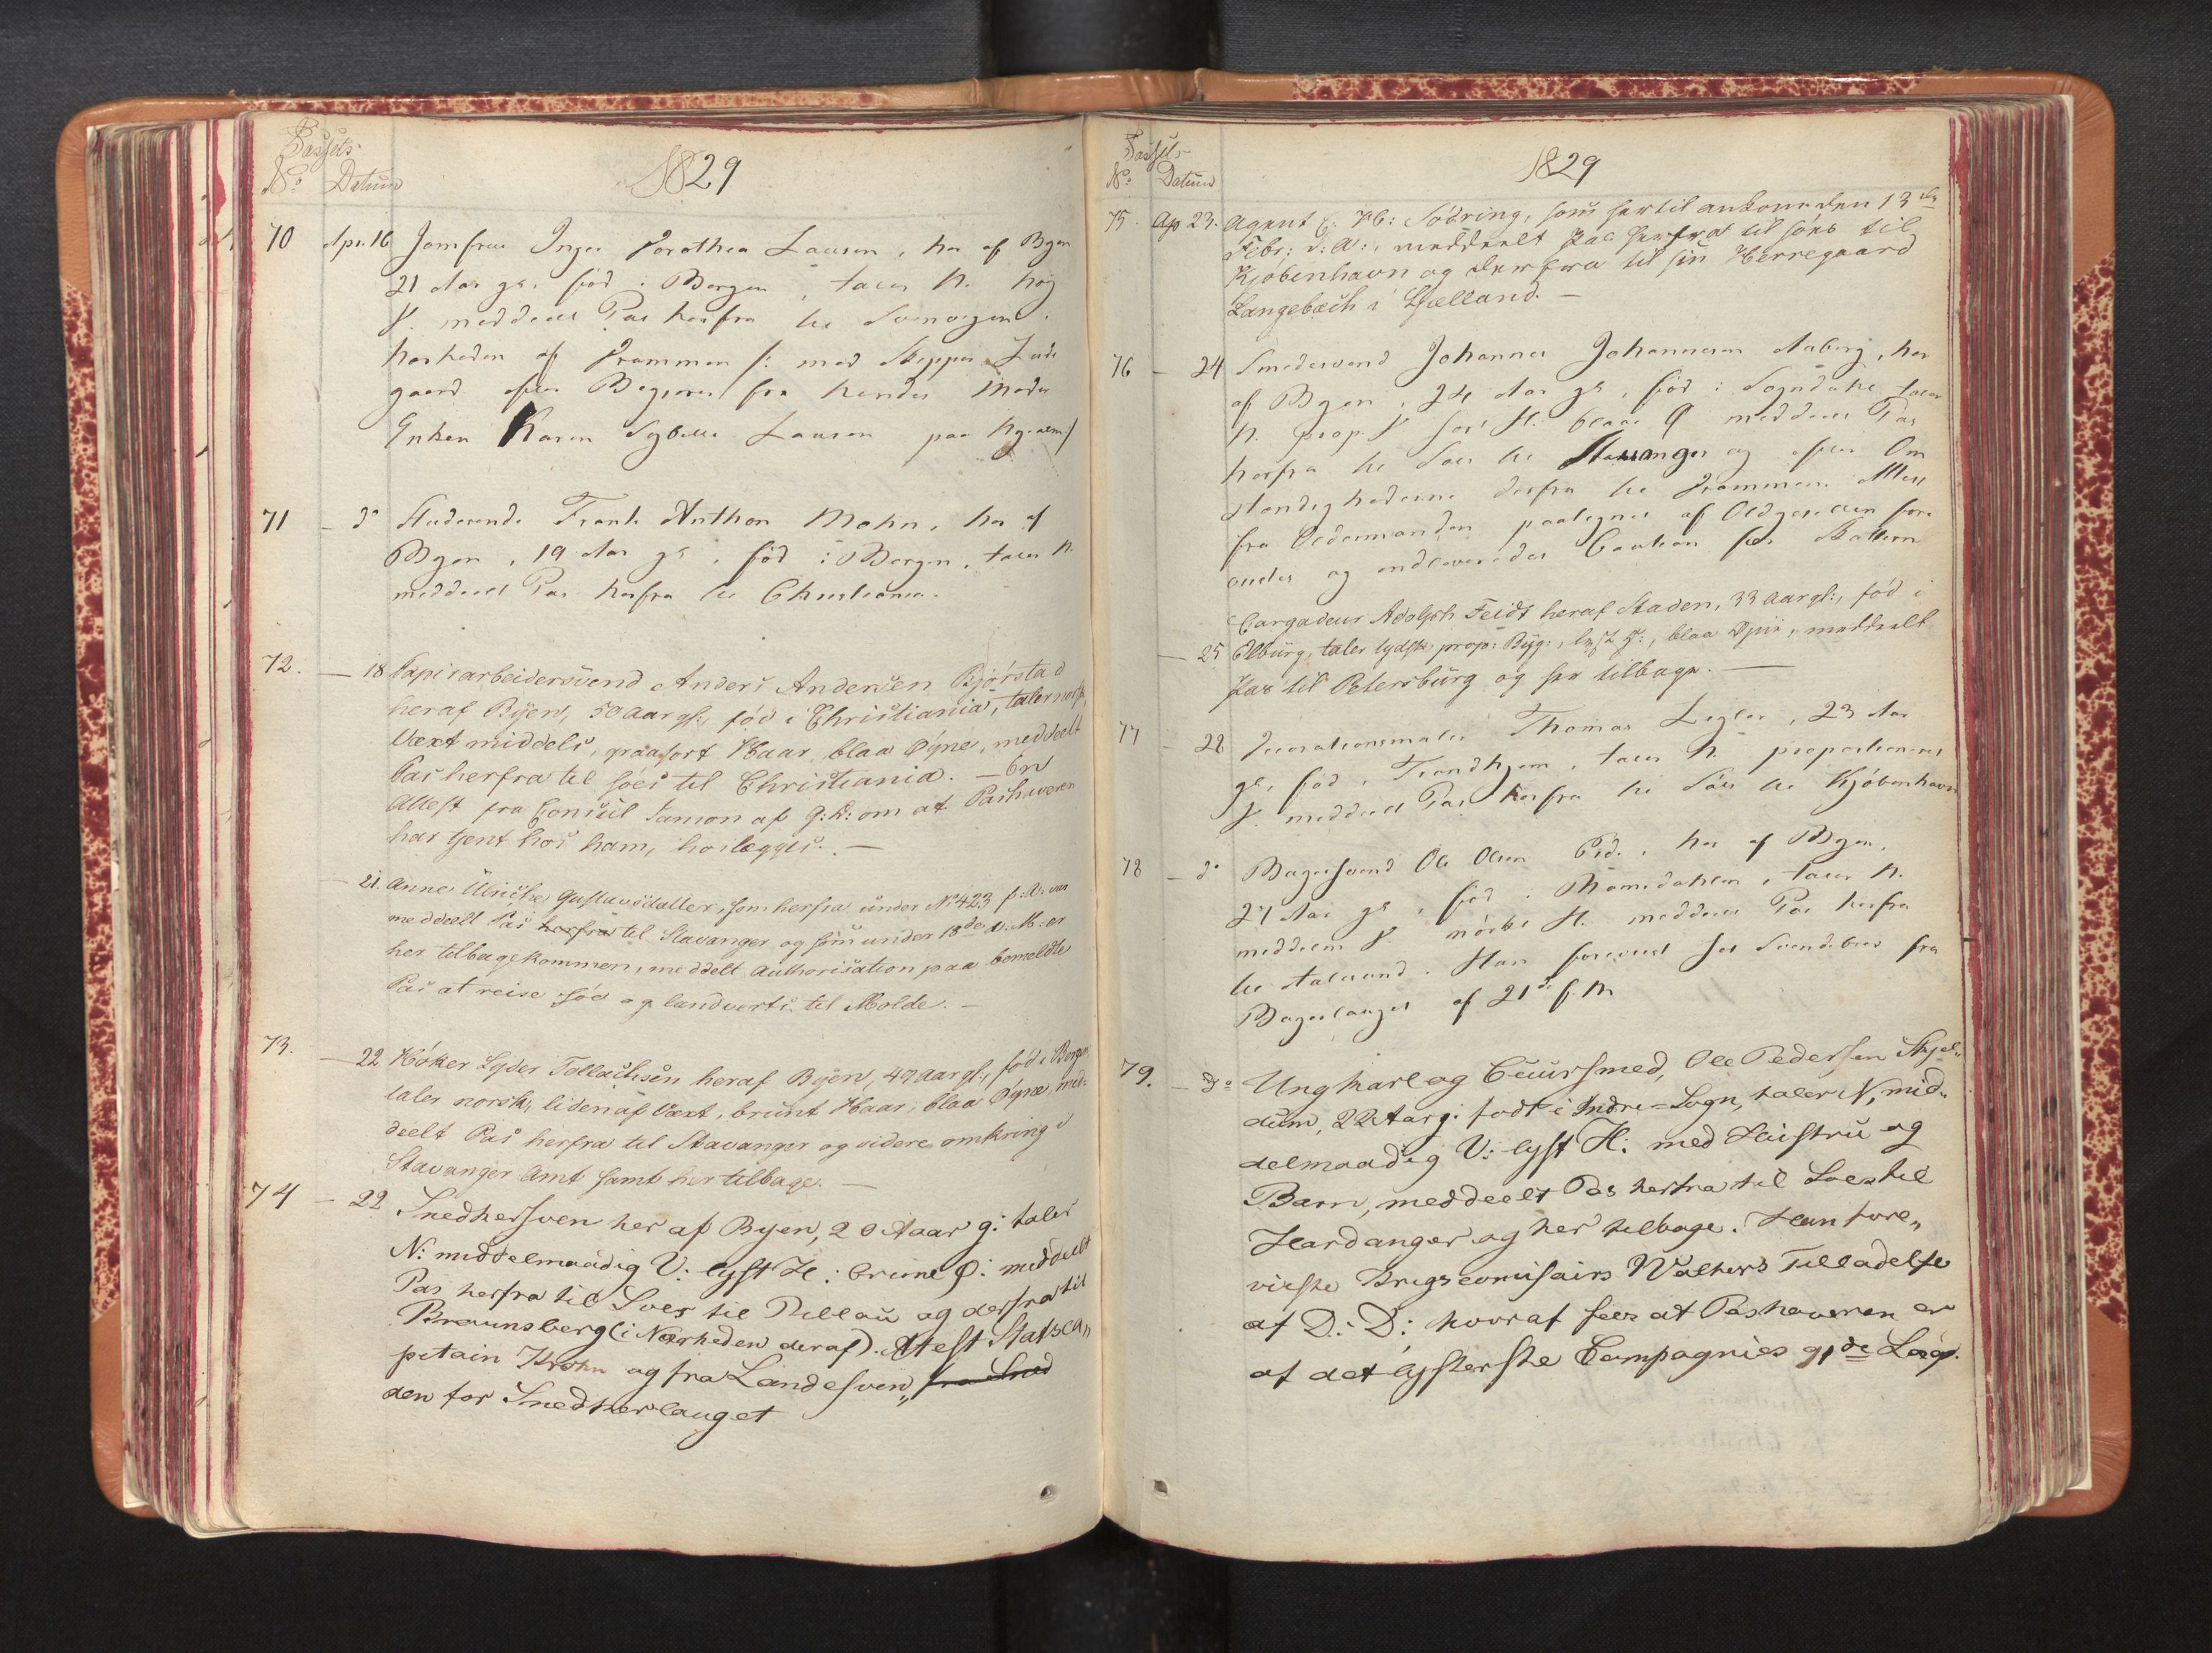 Passets
No Datum
1829
70 Apr. 16 Jomfrue Inger Dorothea Lausen, her af Byen
21 Aar gl. fød i Bergen, taler N. høy
V. meddeelt Pas herfra til
af Drammen /: med Skipper
gaard efter Begjæring fra hendes Moder
Enken Karen Sybille Lausen paa
71 - do Studerende Frank Anthon Mohn, her af
Byen, 19 Aar gl., fød i Bergen, taler N.
meddeelt Pas herfra til Christiania.
72. - 18 Papirarbeidersvend Anders Andersen Bjørstad
heraf Byen, 50 aar gl., fød i Christiania, taler norsk,
Væxt middels, graasort Haar, blaa Øyne, meddeelt
Pas herfra til søes til Christiania. - En
Attest fra Consul Janson af G: D: om at Pashaveren
har tjent hos ham, heilægges. -
- 21. Anne Ulriche Gustavsdatter, som herfra under No 423 f: A: var
meddeelt Pas herfra til Stavanger og som under 18de d: M: er
her tilbagekommen, meddelt Authorisation paa bemeldte
Pas at reise søe og landverts til Molde. -
73. - 22 Høker Lyder Tollachsen heraf Byen, 49 aar gl., fød i Bergen,
taler norsk, liden af Væxt, brunt Haar, blaa Øyne, med-
deelt Pas herfra til Stavanger og videre omkring i
Stavanger Amt samt her tilbage. -
74 - 22 Snedkersven her af Byen, 20 Aar g: taler
N: middelmaadig V: lyst H: brune Ø: meddeelt
Pas herfra til Søes til Pillau og derfra til
Braunsberg (i Nærheden deraf). Attest Statsca„
pitain Krohn og fra Landesven„ fra Sned
den for Snedkerlauget
Passets
No Datum
1829
75. Ap 23. Agent Sødring, som hertil ankom den 13de
Febr: d: A:, meddeelt Pas herfra til søes til
Kjøbenhavn og derfra til sin Herregaard
Langebæch i Sjælland. -
76 - 24 Smedesvend Johannes Johannesen Aaberg, her
af Byen, 24 Aar gl, fød i Sogndahl taler
N. prop. V sort H. blaae Ø meddeelt Pas
herfra til Søes til Stavanger og efter Om
stændighederne derfra til Drammen. Attest
fra Oldermanden paategnet af Oldgesellen fore
vistes og indleveredes Caution for Skatterne
Cargadeur Adolph Feidt heraf Staden, 33 aar gl:, fød i
- 25 Elburg, taler tydsk, prop: Byg:, lyst H:, blaa Øjne, meddeelt
Pas til Petersburg og her tilbage. -
77 - 28 Decorationsmaler Thomas Legler, 23 Aar
gl, fød i Trondhjem, taler N. proportioneret
V. meddeelt Pas herfra til Søes til Kjøbenhavn
78 - do Bagersvend Ole Olsen Eid., her af Byen,
27 Aar gl, fød i Romsdahlen, taler N.
middelm V. mörkt H. meddeelt Pas herfra
til Aalesund. Han foreviist sit Svendebrev fra
Bagerlauget af 21de f. M
79. - do Ungkarl og Cuursmed, Ole Pedersen Skjel„
dum, 22 Aar g: født i Indre=Sogn, taler N, mid„
delmaadig V: lyst H: med Hustru og
Barn, meddeelt Pas herfra til Søes til
Hardanger og her tilbage. Han fore„
viiste Krigscomisairs Walters Tilladelse
af D: D: hvoraf sees at Pashaveren er
af det lysterske Compagnies 91de Læg.